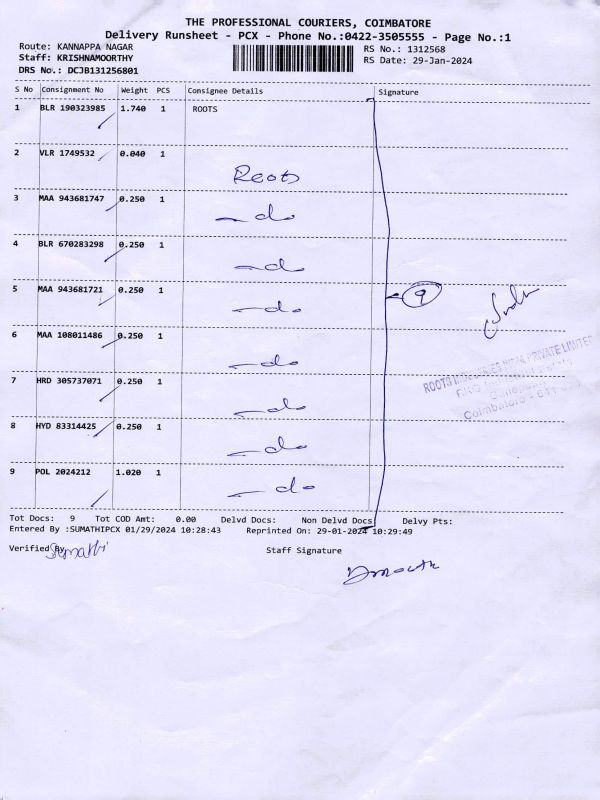 THE PROFESSIONAL COURIERS, COIMBATORE
Delivery Runsheet - PCX - Phone No.:0422-3505555 - Page No.:1
Route: KANNAPPA NAGAR RS No.: 1312568
Staff: KRISHNAMOORTHY RS Date: 29-Jan-2024
DRS No.: DCJB131256801
S No Consignment No Weight PCS Consignee Details Signature
1 BLR 190323985 1.740 1 ROOTS
2 VLR 1749532 0.040 1 Roots
3 MAA 943681747 0.250 1 — do
4 BLR 670283298 0.250 1 — do
5 MAA 943681721 0.250 1 — do
9
6 MAA 108011486 0.250 1 — do
ROOTS INDUSTRIES INDIA PRIVATE LIMITED
7 HRD 305737071 0.250 1 — do
Coimbatore - 641
8 HYD 83314425 0.250 1 — do
9 POL 2024212 1.020 1 — do
Tot Docs: 9 Tot COD Amt: 0.00 Delvd Docs: Non Delvd Docs Delvy Pts:
Entered By :SUMATHIPCX 01/29/2024 10:28:43 Reprinted On: 29-01-2024 10:29:49
Verified By Sumathi Staff Signature